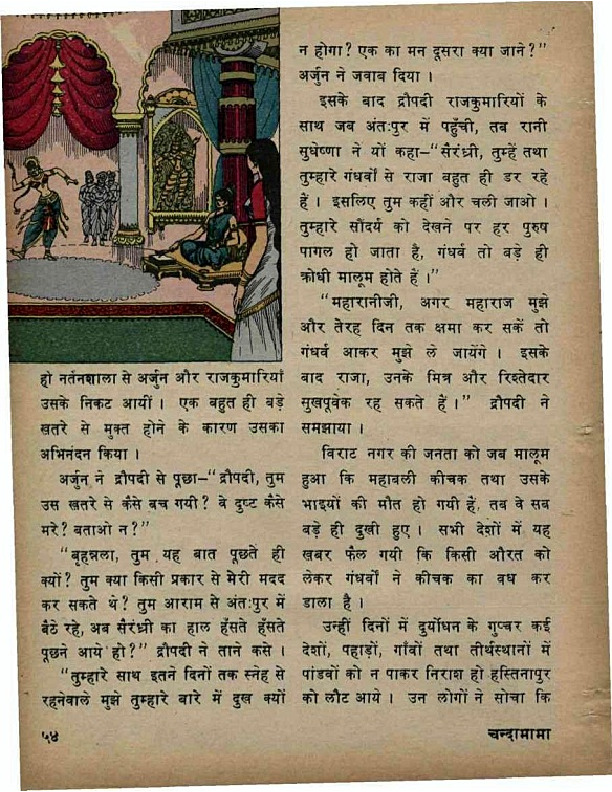 हो नर्तनशाला से अर्जुन और राजकुमारियाँ
उसके निकट आयीं । एक बहुत ही बड़े
खतरे से मुक्त होने के कारण उसका
अभिनंदन किया ।
अर्जुन ने द्रौपदी से पूछा–“द्रौपदी, तुम
उस खतरे से कैसे बच गयी? वे दुष्ट कैसे
मरे? बताओ न?”
“बृहन्नला, तुम यह बात पूछते ही
क्यों? तुम क्या किसी प्रकार से मेरी मदद
कर सकते थे? तुम आराम से अंतःपुर में
बैठे रहे, अब सैरंध्री का हाल हँसते हँसते
पूछने आये हो?” द्रौपदी ने ताने कसे ।
“तुम्हारे साथ इतने दिनों तक स्नेह से
रहनेवाले मुझे तुम्हारे बारे में दुख क्यों
न होगा? एक का मन दूसरा क्या जाने?”
अर्जुन ने जवाब दिया ।
इसके बाद द्रौपदी राजकुमारियों के
साथ जब अंतःपुर में पहुँची, तब रानी
सुधेष्णा ने यों कहा–“सैरंध्री, तुम्हें तथा
तुम्हारे गंधर्वों से राजा बहुत ही डर रहे
हैं । इसलिए तुम कहीं और चली जाओ ।
तुम्हारे सौंदर्य को देखने पर हर पुरुष
पागल हो जाता है, गंधर्व तो बड़े ही
क्रोधी मालूम होते हैं ।”
“महारानीजी, अगर महाराज मुझे
और तेरह दिन तक क्षमा कर सकें तो
गंधर्व आकर मुझे ले जायेंगे । इसके
बाद राजा, उनके मित्र और रिश्तेदार
सुखपूर्वक रह सकते हैं ।” द्रौपदी ने
समझाया ।
विराट नगर की जनता को जब मालूम
हुआ कि महाबली कीचक तथा उसके
भाइयों की मौत हो गयी हैं, तब वे सब
बड़े ही दुखी हुए । सभी देशों में यह
खबर फैल गयी कि किसी औरत को
लेकर गंधर्वों ने कीचक का वध कर
डाला है ।
उन्हीं दिनों में दुर्योधन के गुप्चर कई
देशों, पहाड़ों, गाँवों तथा तीर्थस्थानों में
पांडवों को न पाकर निराश हो हस्तिनापुर
को लौट आये । उन लोगों ने सोचा कि
५४
चन्दामामा